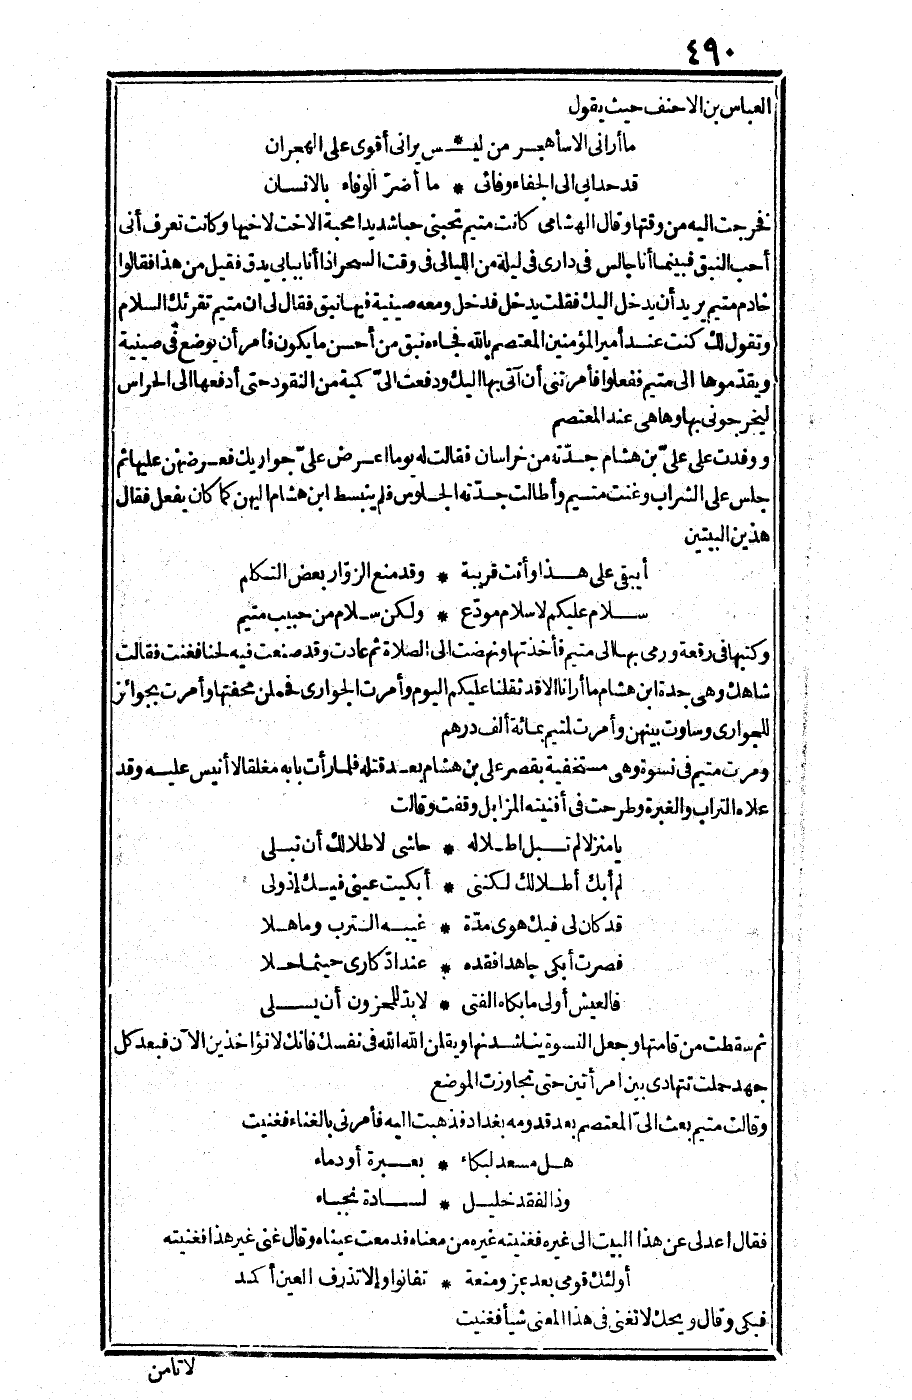 ٤٩٠
العباس بن الاحنف حيث يقول
ما أراني الا سأهجر من ليـ * ـس يراني أقوى على الهجران
قد حدابي الى الجفاء وفائي * ما أضرّ الوفاء بالانسان
فخرجت اليه من وقتها وقال الهشامي كانت متيم تحبني حبا شديدا محبة الاخت لاخيها وكانت تعرف أني
أحب النبق فبينما أنا جالس في داري في ليلة من الليالي في وقت السحر اذا أنا ببابي يدق فقيل من هذا فقالوا
خادم متيم يريد أن يدخل اليك فقلت يدخل فدخل ومعه صينية فيها نبق فقال لي ان متيم تقرئك السلام
وتقول لك كنت عند أمير المؤمنين المعتصم بالله فجاءه نبق من أحسن ما يكون فأمر أن يوضع في صينية
ويقدّموها الى متيم ففعلوا فأمرتني أن آتي بها اليك ودفعت الىّ كمية من النقود حتى أدفعها الى الحراس
ليخرجوني بها وها هي عند المعتصم
ووفدت على علىّ بن هشام جدّته من خراسان فقالت له يوما اعرض علىّ جواريك فعرضهن عليها ثم
جلس على الشراب وغنت متيم وأطالت جدّته الجلوس فلم ينبسط ابن هشام اليهن كما كان يفعل فقال
هذين البيتين
أيبقى على هذا وأنت قريبة * وقد منع الزوّار بعض التكلم
سلام عليكم لا سلام مودّع * ولكن سلام من حبيب متيم
وكتبها في رقعة ورمى بها الى متيم فأخذتها ونهضت الى الصلاة ثم عادت وقد صنعت فيه لحنا فغنت فقالت
شاهك وهي جدة ابن هشام ما أرانا الا قد ثقلنا عليكم اليوم وأمرت الجواري فحملن محفتها وأمرت بجوائز
للجواري وساوت بينهن وأمرت لمتيم بمائة ألف درهم
ومرت متيم في نسوة وهي مستخفية بقصر علي بن هشام بعد قتله فلما رأت بابه مغلقا لا أنيس عليه وقد
علاه التراب والغبرة وطرحت في أفنيته المزابل وقفت وقالت
يا منزلا لم تبل اطلاله * حاشى لاطلالك أن تبلى
لم أبك أطلالك لكنني * أبكيت عيني فيك إذ ولى
قد كان لي فيك هوى مدّة * غيبه الترب وما هلا
فصرت أبكي جاهدا فقده * عند ادّكاري حيثما حلا
فالعيش أولى ما بكاه الفتى * لا بدّ للمحزون أن يسلى
ثم سقطت من قامتها وجعل النسوة يناشدنها ويقلن الله الله في نفسك فانك لا تؤاخذين الآن فبعد كل
جهد حملت تتهادى بين امرأتين حتى تجاوزت الموضع
وقالت متيم بعث الىّ المعتصم بعد قدومه بغداد فذهبت اليه فأمرني بالغناء فغنيت
هل مسعد لبكاء * بعبرة أو دماء
وذا لفقد خليل * لسادة نجباء
فقال اعدلي عن هذا البيت الى غيره فغنيته غيره من معناه فدمعت عيناه وقال غنى غير هذا فغنيته
أولئك قومي بعد عز ومنعة * تفانوا وإلا تذرف العين أكمد
فبكى وقال ويحك لا تغنى في هذا المعنى شيأ فغنيت
لا تأمن